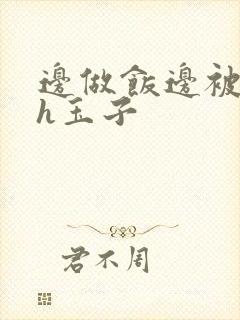 邊做飯邊被
h玉子
君不周